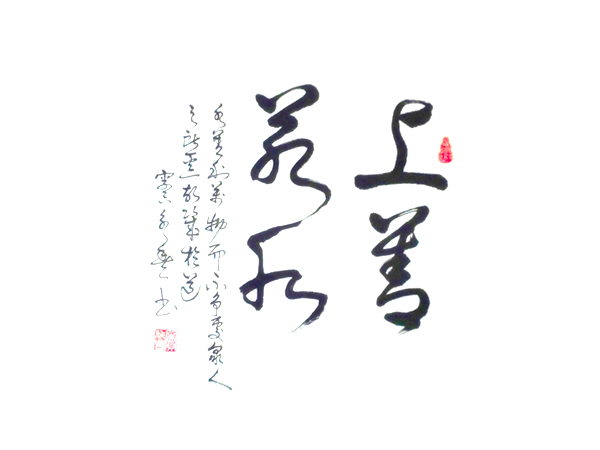 上善
若水
水善利萬物而不争處衆人
之所惡故幾於道
書